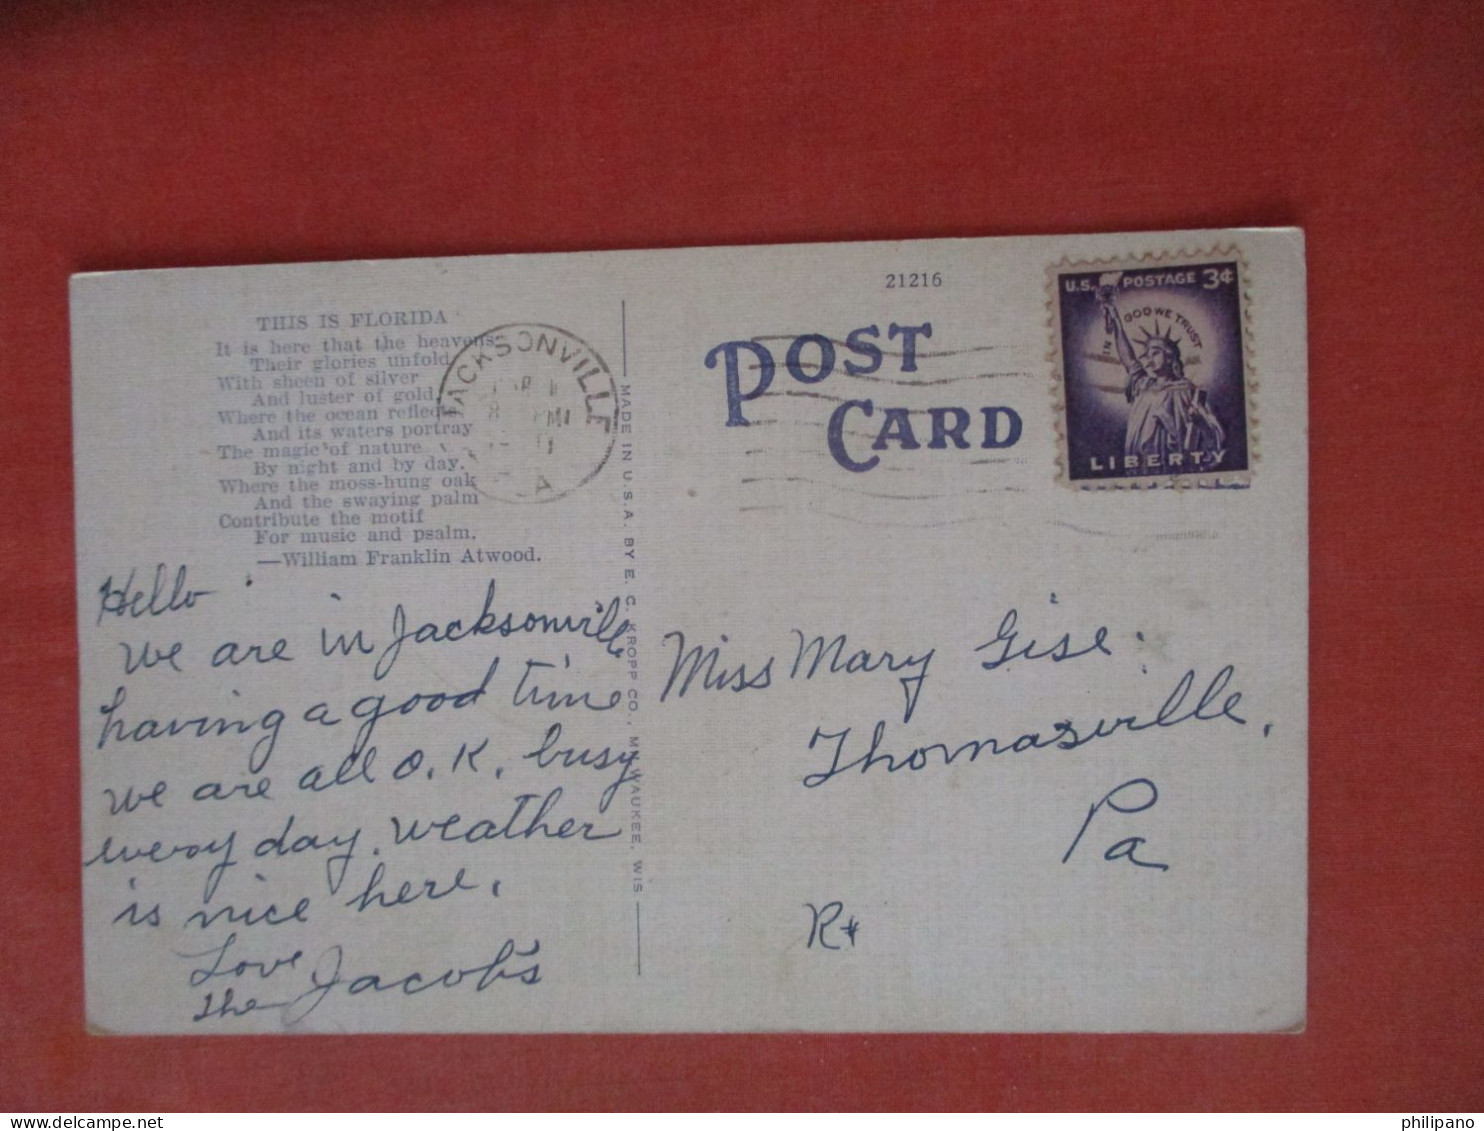 THIS IS FLORIDA
It is here that the heavens
Their glories unfold
With sheen of silver
And luster of gold,
Where the ocean reflects
And its waters portray
The magic of nature
By night and by day.
Where the moss-hung oak
And the swaying palm
Contribute the motif
For music and psalm.
—William Franklin Atwood.
Hello
We are in Jacksonville
having a good time
we are all O.K. busy
every day. weather
is nice here.
Love
the Jacob's
JACKSONVILLE
MADE IN U.S.A. BY E. C. KROPP CO., MILWAUKEE, WIS
21216
POST
CARD
U.S. POSTAGE 3¢
IN GOD WE TRUST
LIBERTY
Miss Mary Gise.
Thomasville,
Pa
philipano